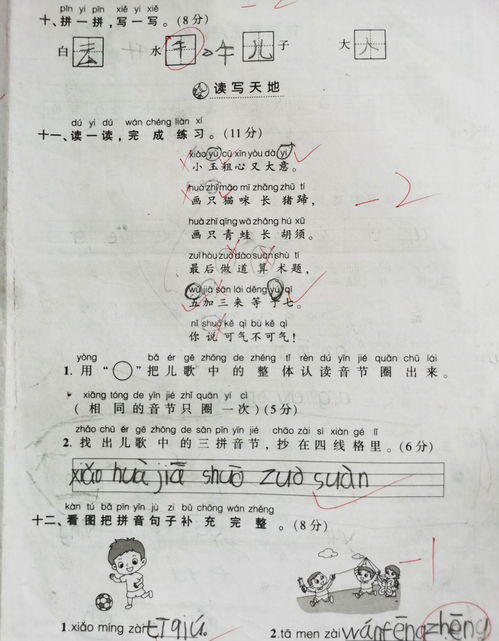 pīn yi pīn xiě yi xiě
十、拼一拼,写一写。(8分)
白 云 水 牛 午 儿 子 大 人
读写天地
dú yi dú wán chéng liàn xí
十一、读一读,完成练习。(11分)
xiǎo yù cū xīn yòu dà yì
小玉粗心又大意。
huà zhī māo mī zhǎng zhū tí
画只猫咪长猪蹄,
huà zhī qīng wā zhǎng hú xū
画只青蛙长胡须。
zuì hòu zuò dào suàn shù tí
最后做道算术题,
wǔ jiā sān lái děng yú qī
五加三来等于七。
nǐ shuō kě qì bù kě qì
你说可气不可气!
yòng bǎ ér gē zhōng de zhěng tǐ rèn dú yīn jié quān chū lái
1. 用“○”把儿歌中的整体认读音节圈出来。
xiāng tóng de yīn jié zhǐ quān yí cì
(相同的音节只圈一次)(5分)
zhǎo chū ér gē zhōng de sān pīn yīn jié chāo zài sì xiàn gé lǐ
2. 找出儿歌中的三拼音节,抄在四线格里。(6分)
xiǎo huà jiā shuō zuò suàn
kàn tú bǎ pīn yīn jù zi bǔ chōng wán zhěng
十二、看图把拼音句子补充完整。(8分)
1.xiǎo míng zài tī qiú。 2.tā men zài fēng zhēng
-2
-1